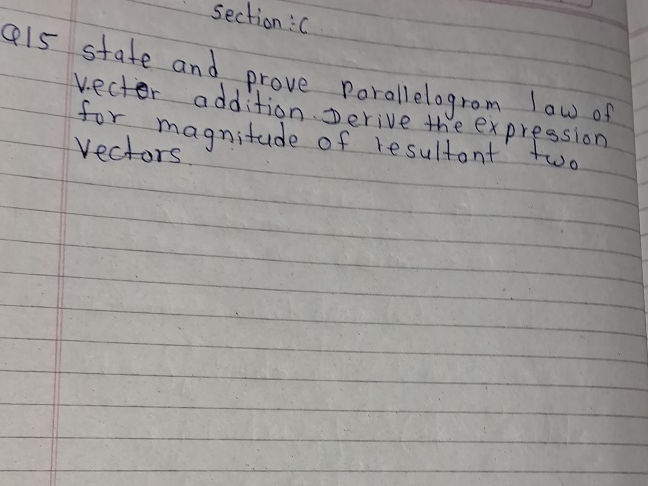 Section: C
Q15 state and prove Parallelogram law of
vector addition. Derive the expression
for magnitude of resultant two
vectors